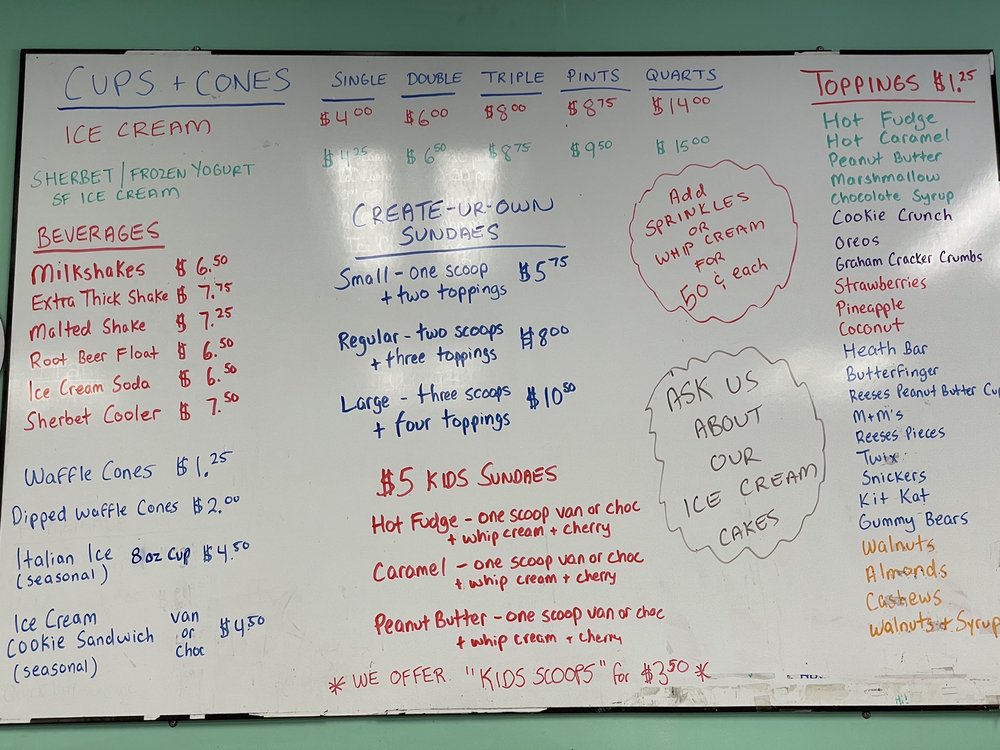 CUPS + CONES
SINGLE DOUBLE TRIPLE PINTS QUARTS
ICE CREAM
$4.00 $6.00 $8.00 $8.75 $14.00
SHERBET / FROZEN YOGURT
SF ICE CREAM
$4.25 $6.50 $8.75 $9.50 $15.00
BEVERAGES
Milkshakes $6.50
Extra Thick Shake $7.75
Malted Shake $7.25
Root Beer Float $6.50
Ice Cream Soda $6.50
Sherbet Cooler $7.50
Waffle Cones $1.25
Dipped Waffle Cones $2.00
Italian Ice 8 oz cup $4.50
(seasonal)
Ice Cream van
Cookie Sandwich or $4.50
(seasonal) choc
CREATE-UR-OWN
SUNDAES
Small - one scoop $5.75
+ two toppings
Regular - two scoops $8.00
+ three toppings
Large - three scoops $10.50
+ four toppings
$5 KIDS SUNDAES
Hot Fudge - one scoop van or choc
+ whip cream + cherry
Caramel - one scoop van or choc
+ whip cream + cherry
Peanut Butter - one scoop van or choc
+ whip cream + cherry
* WE OFFER "KIDS SCOOPS" for $3.50 *
Add
SPRINKLES
OR
WHIP CREAM
FOR
50¢ each
ASK US
ABOUT
OUR
ICE CREAM
CAKES
TOPPINGS $1.25
Hot Fudge
Hot Caramel
Peanut Butter
Marshmallow
Chocolate Syrup
Cookie Crunch
Oreos
Graham Cracker Crumbs
Strawberries
Pineapple
Coconut
Heath Bar
Butterfinger
Reeses Peanut Butter Cu
M+M's
Reeses Pieces
Twix
Snickers
Kit Kat
Gummy Bears
Walnuts
Almonds
Cashews
Walnuts + Syrup
Hi!